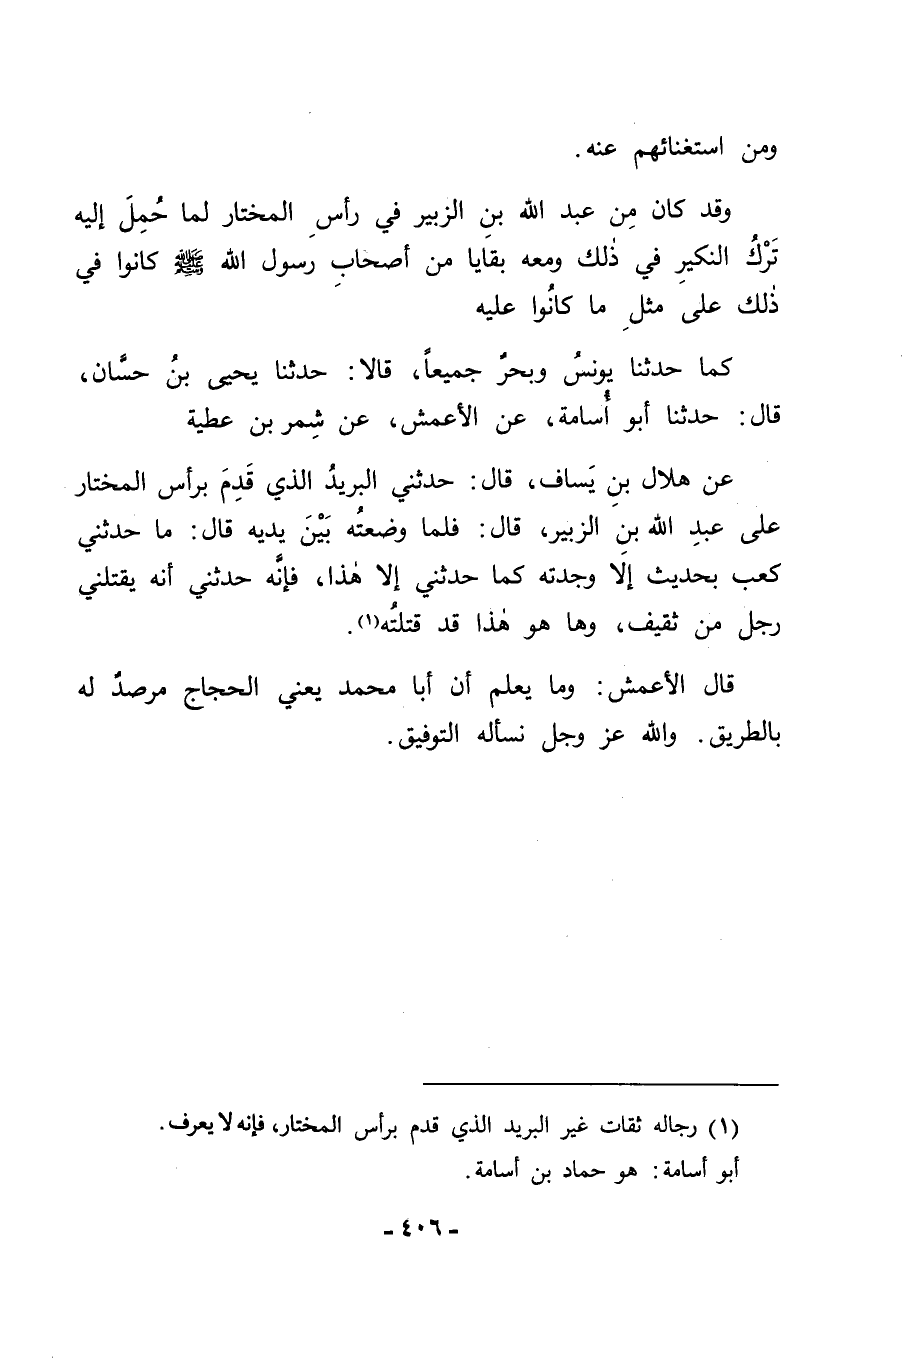 ومن استغنائهم عنه.
وقد كان مِن عبد الله بنِ الزبير في رأسِ المختار لما حُمِلَ إليه
تَرْكُ النكيرِ في ذٰلك ومعه بقايا من أصحابِ رسول الله ﷺ كانوا في
ذٰلك على مثلِ ما كانُوا عليه
كما حدثنا يونسُ وبحرٌ جميعاً، قالا: حدثنا يحيى بنُ حسَّان،
قال: حدثنا أبو أُسامة، عن الأعمش، عن شِمر بن عطية
عن هلال بنِ يَساف، قال: حدثني البريدُ الذي قَدِمَ برأس المختار
على عبدِ الله بنِ الزبير، قال: فلما وضعتُه بَيْنَ يديه قال: ما حدثني
كعب بحديث إلَّا وجدته كما حدثني إلا هٰذا، فإنَّه حدثني أنه يقتلني
رجل من ثقيف، وها هو هٰذا قد قتلتُه(١).
قال الأعمش: وما يعلم أن أبا محمد يعني الحجاج مرصدٌ له
بالطريق. والله عز وجل نسأله التوفيق.
(١) رجاله ثقات غير البريد الذي قدم برأس المختار، فإنه لا يعرف.
أبو أسامة: هو حماد بن أسامة.
- ٤٠٦ -